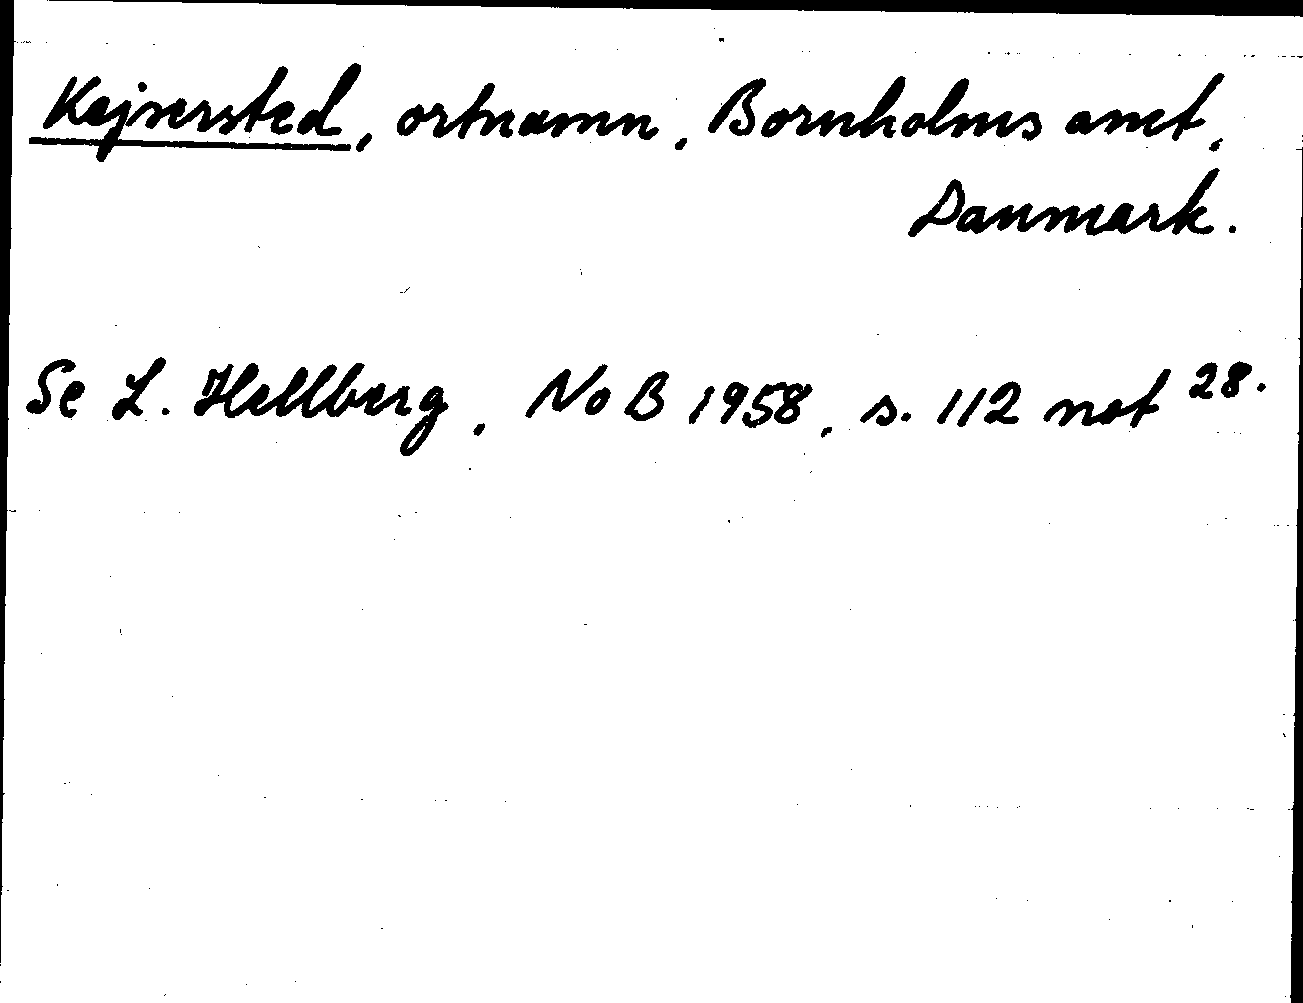 Kejsersted, ortnamn, Bornholms amt,
Danmark.
Se L. Hellberg, NoB 1958, s. 112 not 28.